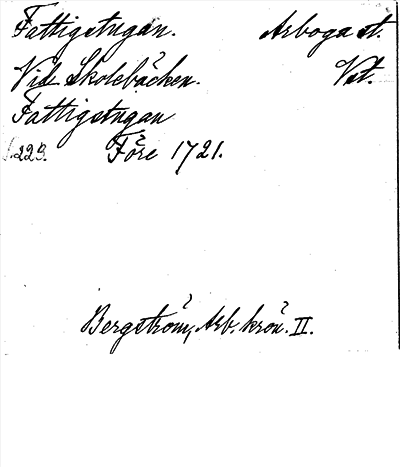 Fattigstugan. Arboga st.
Vid Skolebäcken. Vst.
Fattigstugan
s. 223. Före 1721.
Bergström, Arb. krön. II.